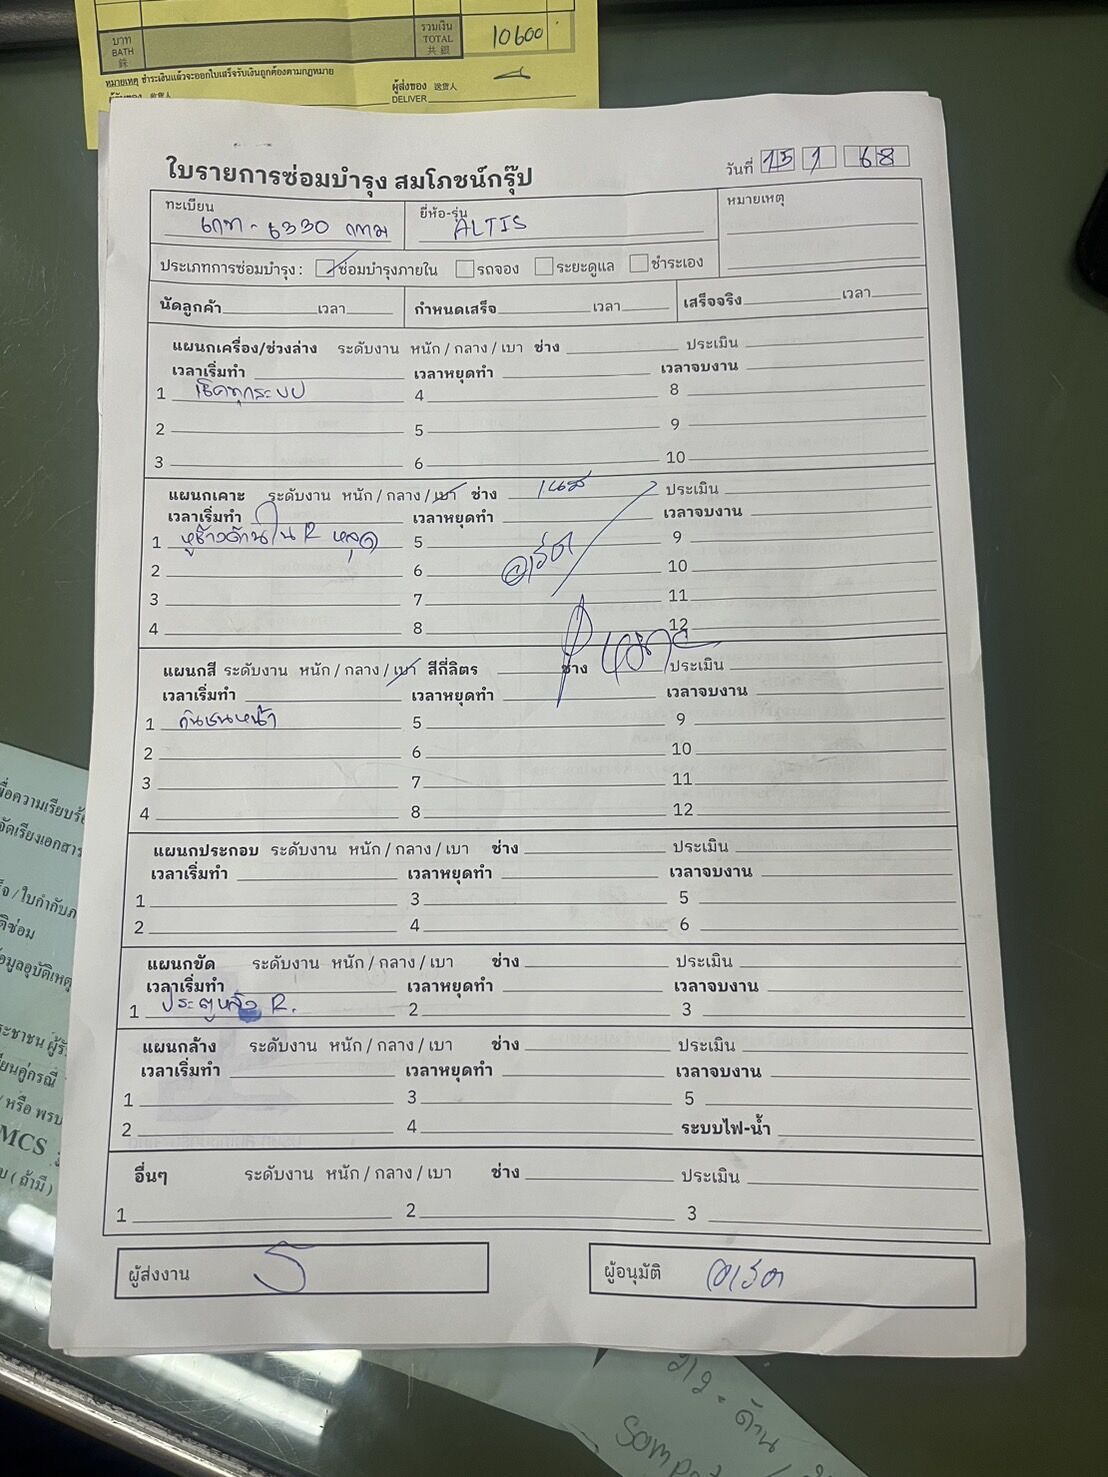 บาท
BATH
銖
รวมเงิน
TOTAL
共銀
10600
หมายเหตุ ชำระเงินแล้วจะออกใบเสร็จรับเงินถูกต้องตามกฎหมาย
ผู้ส่งของ 送貨人
DELIVER
ใบรายการซ่อมบำรุง สมโภชน์กรุ๊ป
วันที่ 15 1 68
ทะเบียน
6330 กทม
ยี่ห้อ-รุ่น
ALTIS
หมายเหตุ
ประเภทการซ่อมบำรุง : ซ่อมบำรุงภายใน รถจอง ระยะดูแล ชำระเอง
นัดลูกค้า เวลา กำหนดเสร็จ เวลา เสร็จจริง เวลา
แผนกเครื่อง/ช่วงล่าง ระดับงาน หนัก / กลาง / เบา ช่าง ประเมิน
เวลาเริ่มทำ เวลาหยุดทำ เวลาจบงาน
1 เช็คทุกระบบ 4 8
2 5 9
3 6 10
แผนกเคาะ ระดับงาน หนัก / กลาง / เบา ช่าง ประเมิน
เวลาเริ่มทำ เวลาหยุดทำ เวลาจบงาน
1 หูช้างด้านใน R หลุด 5 9
2 6 10
3 7 11
4 8 12
แผนกสี ระดับงาน หนัก / กลาง / เบา สีกี่ลิตร ช่าง ประเมิน
เวลาเริ่มทำ เวลาหยุดทำ เวลาจบงาน
1 กันชนหน้า 5 9
2 6 10
3 7 11
4 8 12
แผนกประกอบ ระดับงาน หนัก / กลาง / เบา ช่าง ประเมิน
เวลาเริ่มทำ เวลาหยุดทำ เวลาจบงาน
1 3 5
2 4 6
แผนกขัด ระดับงาน หนัก / กลาง / เบา ช่าง ประเมิน
เวลาเริ่มทำ เวลาหยุดทำ เวลาจบงาน
1 ประตูหลัง R. 2 3
แผนกล้าง ระดับงาน หนัก / กลาง / เบา ช่าง ประเมิน
เวลาเริ่มทำ เวลาหยุดทำ เวลาจบงาน
1 3 5
2 4 ระบบไฟ-น้ำ
อื่นๆ ระดับงาน หนัก / กลาง / เบา ช่าง ประเมิน
1 2 3
ผู้ส่งงาน
ผู้อนุมัติ
จัดเรียงเอกสาร
/ ใบกำกับภ
ข้อมูลอุบัติเหตุ
/ หรือ พรบ
MCS
( ถ้ามี )
ด้าน